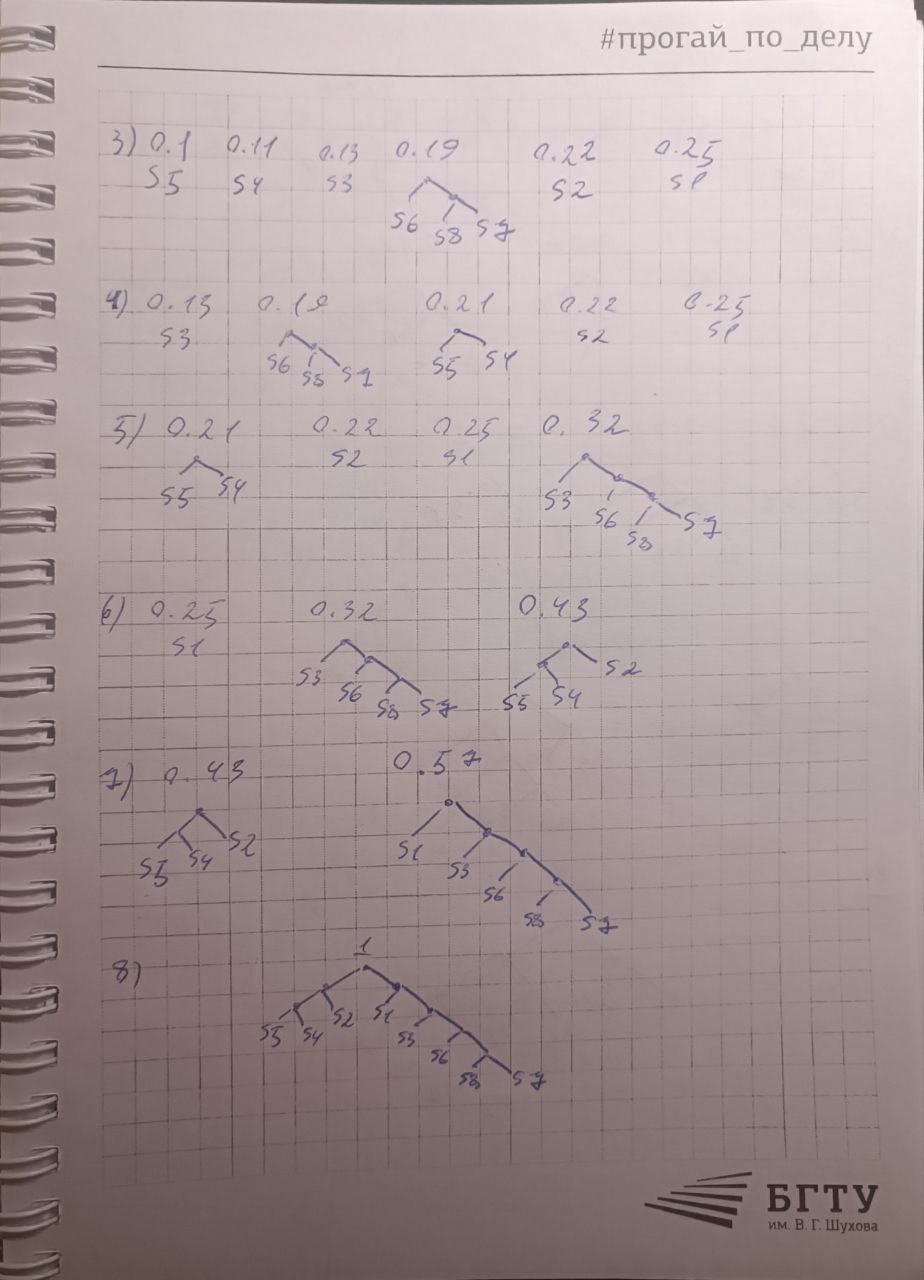 #прогай_по_делу
3) 0.1 0.11 0.13 0.19 0.22 0.25
S5 S4 S3 S2 S1
S6 S8 S7
4) 0.13 0.19 0.21 0.22 0.25
S3 S2 S1
S6 S8 S7 S5 S4
5) 0.21 0.22 0.25 0.32
S2 S1
S5 S4 S3 S6 S8 S7
6) 0.25 0.32 0.43
S1
S3 S6 S8 S7 S5 S4 S2
7) 0.43 0.57
S5 S4 S2 S1 S3 S6 S8 S7
8) 1
S5 S4 S2 S1 S3 S6 S8 S7
БГТУ
им. В. Г. Шухова